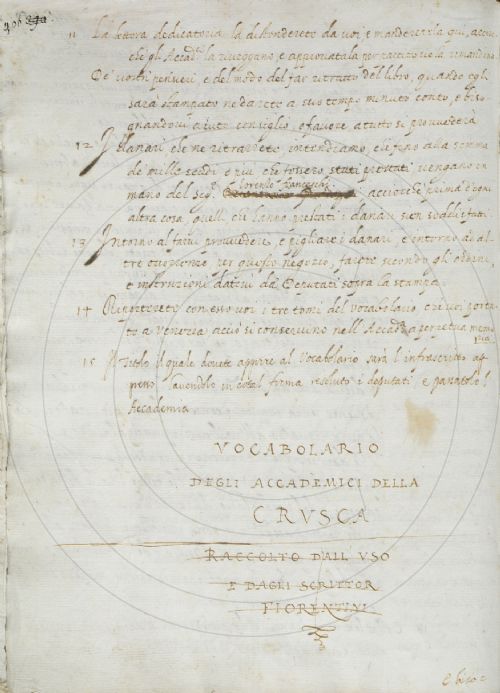 406
11 La lettera dedicatoria la distenderete da voi, e manderetela qui, acciò
che gli Accad.ci la riveggano, e approvatala per partito ve la rimandino.
De' vostri pensieri, e del modo del far ritratto del libro, quando egli
sarà stampato ne darete a suo tempo minuto conto, e biso
gnandovi aiuto consiglio, o favore a tutto si provvederà
12 I danari che ne ritrarrete, intendiamo, che fino alla somma
de mille scudi e più che fossero stati prestati vengano in
mano del Seg.o Lorenzo Franceschi acciochè prima d'ogni
altra cosa quelli che hanno prestati i danari sien soddisfatti
13 Intorno al farvi provvedere, e pigliare i danari, e intorno ad al
tre occorrenze per questo negozio, farete secondo gli ordini,
e instruzioni dativi da' Deputati sopra la stampa.
14 Riporterete con esso voi i tre tomi del Vocabolario che voi porta
te a Venezia acciò si conservino nell'Accad.a a perpetua memo
ria
15 Il titolo il quale dovete apporre al Vocabolario sarà l'infrascritto ap
preso havendolo in total forma resoluto i deputati e passatolo l'
Accademia
VOCABOLARIO
DEGLI ACCADEMICI DELLA
CRVSCA
RACCOLTO DALL' VSO
E DAGLI SCRITTOR
FIORENTINI